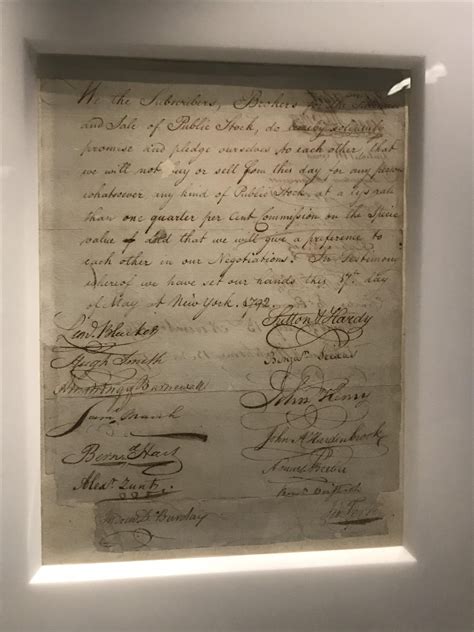 We the Subscribers, Brokers for the Purchase
and Sale of Public Stock, do hereby solemnly
promise and pledge ourselves to each other, that
we will not buy or sell from this day for any person
whatsoever any kind of Public Stock at a less rate
than one quarter per Cent Commission on the Specie
value of and that we will give a preference to
each other in our Negotiations. In Testimony
whereof we have set our hands this 17th day
of May at New York. 1792
Leond. Bleecker
Hugh Smith
Armstrong & Barnewall
Saml. March
Bernd. Hart
Alexr. Zuntz
Sutton & Hardy
Benjn. Seixas
John Henry
John A Hardenbrook
Amos Beebe